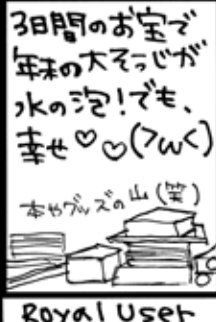 3日間のお宝で
年末の大そうじが
水の泡!でも、
幸せ♡♡(>ω<)
本やグッズの山(笑)
Royal User